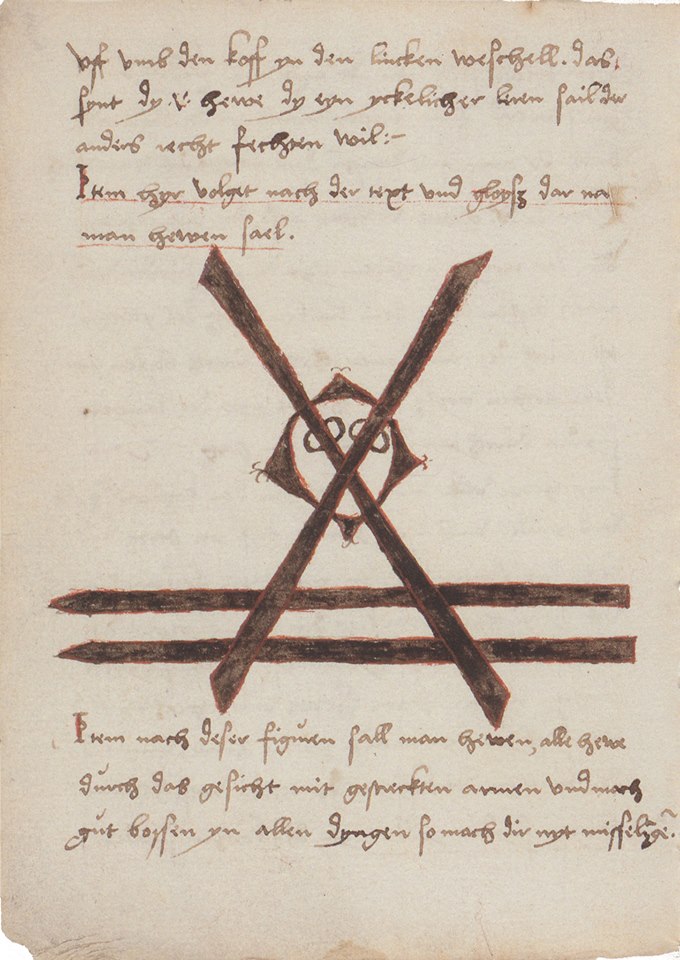 vff vmb den koff yn den lincken weschell. das
synt dy v hewe dy eyn yckelicher leren sail der
anders recht fechten wil:-
Item hyr volget nach der text vnd glopsz dar na
man hewen sael.
Item nach deser figuren sall man hewen, alle hewe
durch das gesicht mit gestreckten armen vnd mach
gut bossen yn allen dyngen so mach dir nyt